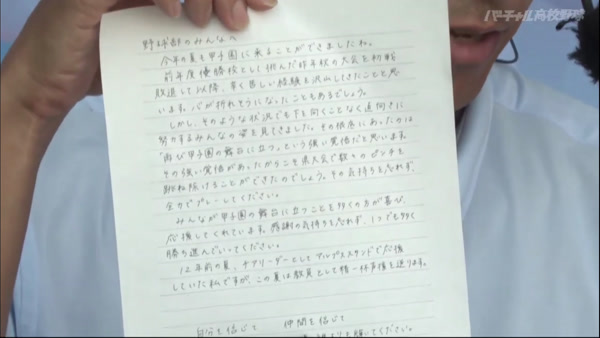 バーチャル高校野球
野球部のみんなへ
今年の夏も甲子園に来ることができましたね。
前年度優勝校として挑んだ昨年秋の大会を初戦
敗退して以降、辛く苦しい経験を沢山してきたことと思
います。心が折れそうになったこともあるでしょう。
しかし、そのような状況でも下を向くことなく直向きに
努力するみんなの姿を見てきました。その根底にあったのは
「再び甲子園の舞台に立つ」という強い覚悟だと思います。
その強い覚悟があったからこそ県大会で数々のピンチを
跳ね除けることができたのでしょう。その気持ちを忘れず、
全力でプレーしてください。
みんなが甲子園の舞台に立つことを多くの方が喜び、
応援してくれています。感謝の気持ちを忘れず、1つでも多く
勝ち進んでいってください。
12年前の夏、チアリーダーとしてアルプススタンドで応援
していた私ですが、この夏は教員として精一杯声援を送ります。
自分を信じて 仲間を信じて
ください。